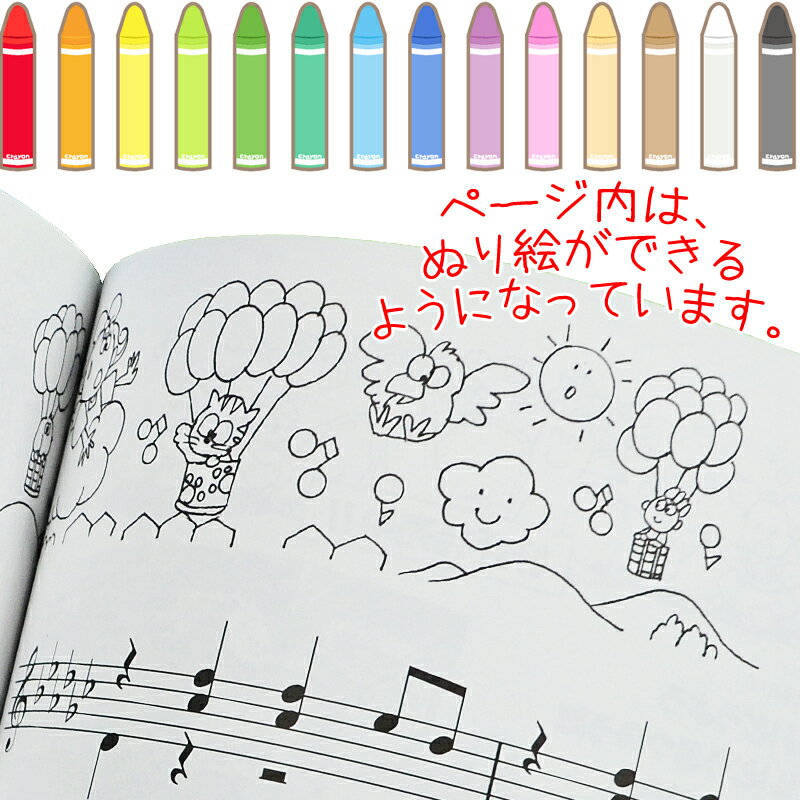 crayon crayon crayon crayon crayon crayon crayon crayon crayon crayon crayon crayon crayon crayon
ページ内は、
ぬり絵ができる
ようになっています。